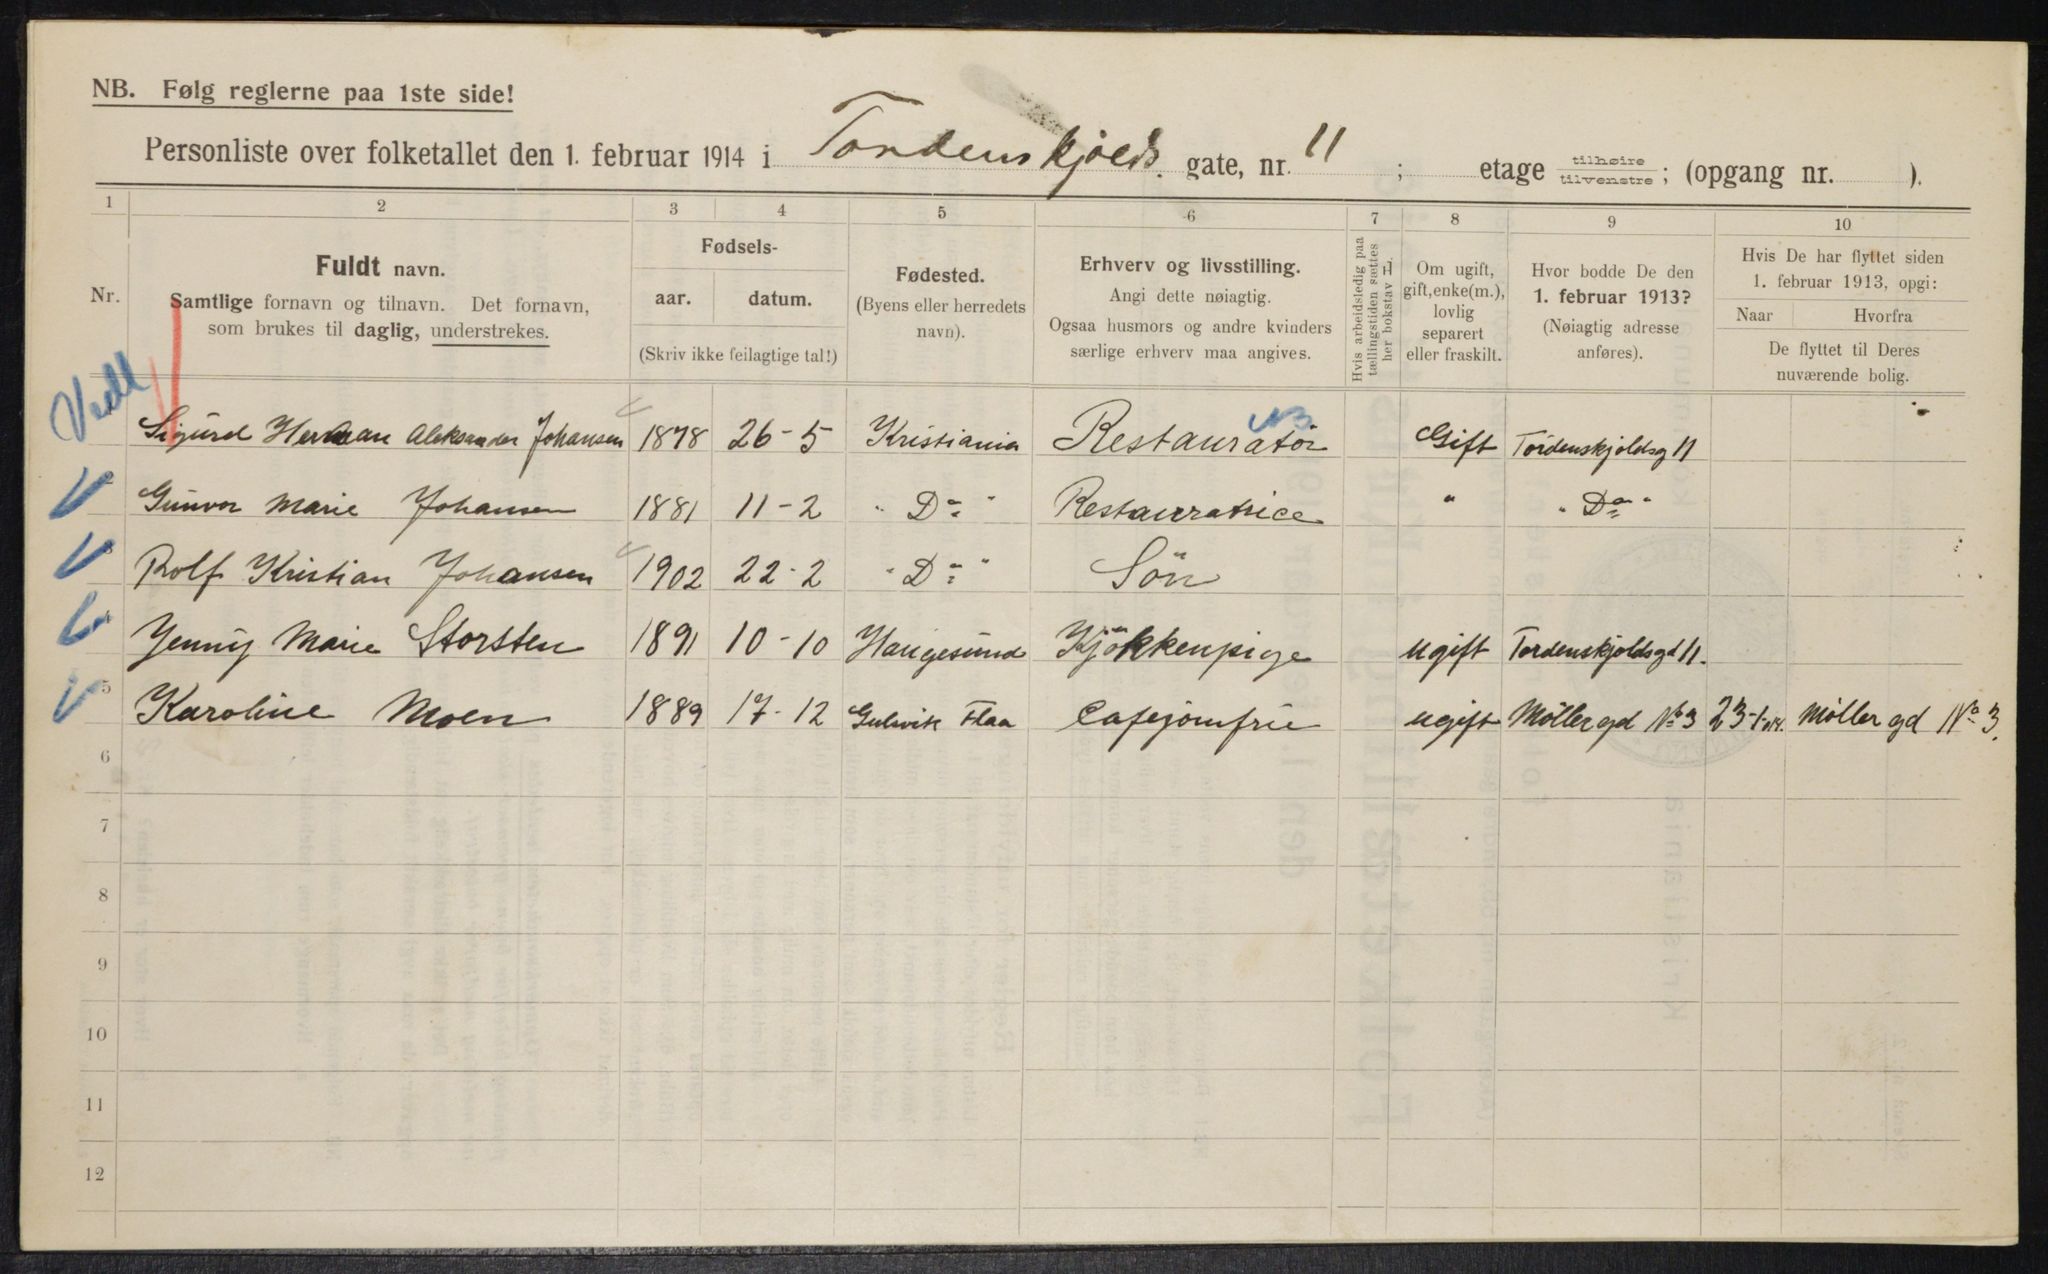 NB. Følg reglerne paa 1ste side!
Personliste over folketallet den 1. februar 1914 i Tordenskjolds. gate, nr. 11 ; etage tilhøire tilvenstre ; (opgang nr. ).
1 2 3 4 5 6 7 8 9 10
Nr.
Fuldt navn.
Samtlige fornavn og tilnavn. Det fornavn,
som brukes til daglig, understrekes.
Fødsels-
aar. datum.
(Skriv ikke feilagtige tal!)
Fødested.
(Byens eller herredets
navn).
Erhverv og livsstilling.
Angi dette nøiagtig.
Ogsaa husmors og andre kvinders
særlige erhverv maa angives.
Hvis arbeidsledig paa
tællingstiden sættes
her bokstav L.
Om ugift,
gift, enke(m.),
lovlig
separert
eller fraskilt.
Hvor bodde De den
1. februar 1913?
(Nøiagtig adresse
anføres).
Hvis De har flyttet siden
1. februar 1913, opgi:
Naar Hvorfra
De flyttet til Deres
nuværende bolig.
Sigurd Herman Aleksander Johansen 1878 26-5 Kristiania Restauratör Gift Tordenskjoldsg 11
2 Gunvor Marie Johansen 1881 11-2 " Do " Restauratrice " " Do "
3 Rolf Kristian Johansen 1902 22-2 " Do " Sön
4 Jenny Marie Storsten 1891 10-10 Haugesund Kjökkenpige ugift Tordenskjoldsgd 11.
5 Karoline Moen 1889 17-12 Flaa Cafejomfru ugift Möllergd No 3 23-1- Möllergd No 3.
6
7
8
9
10
11
12